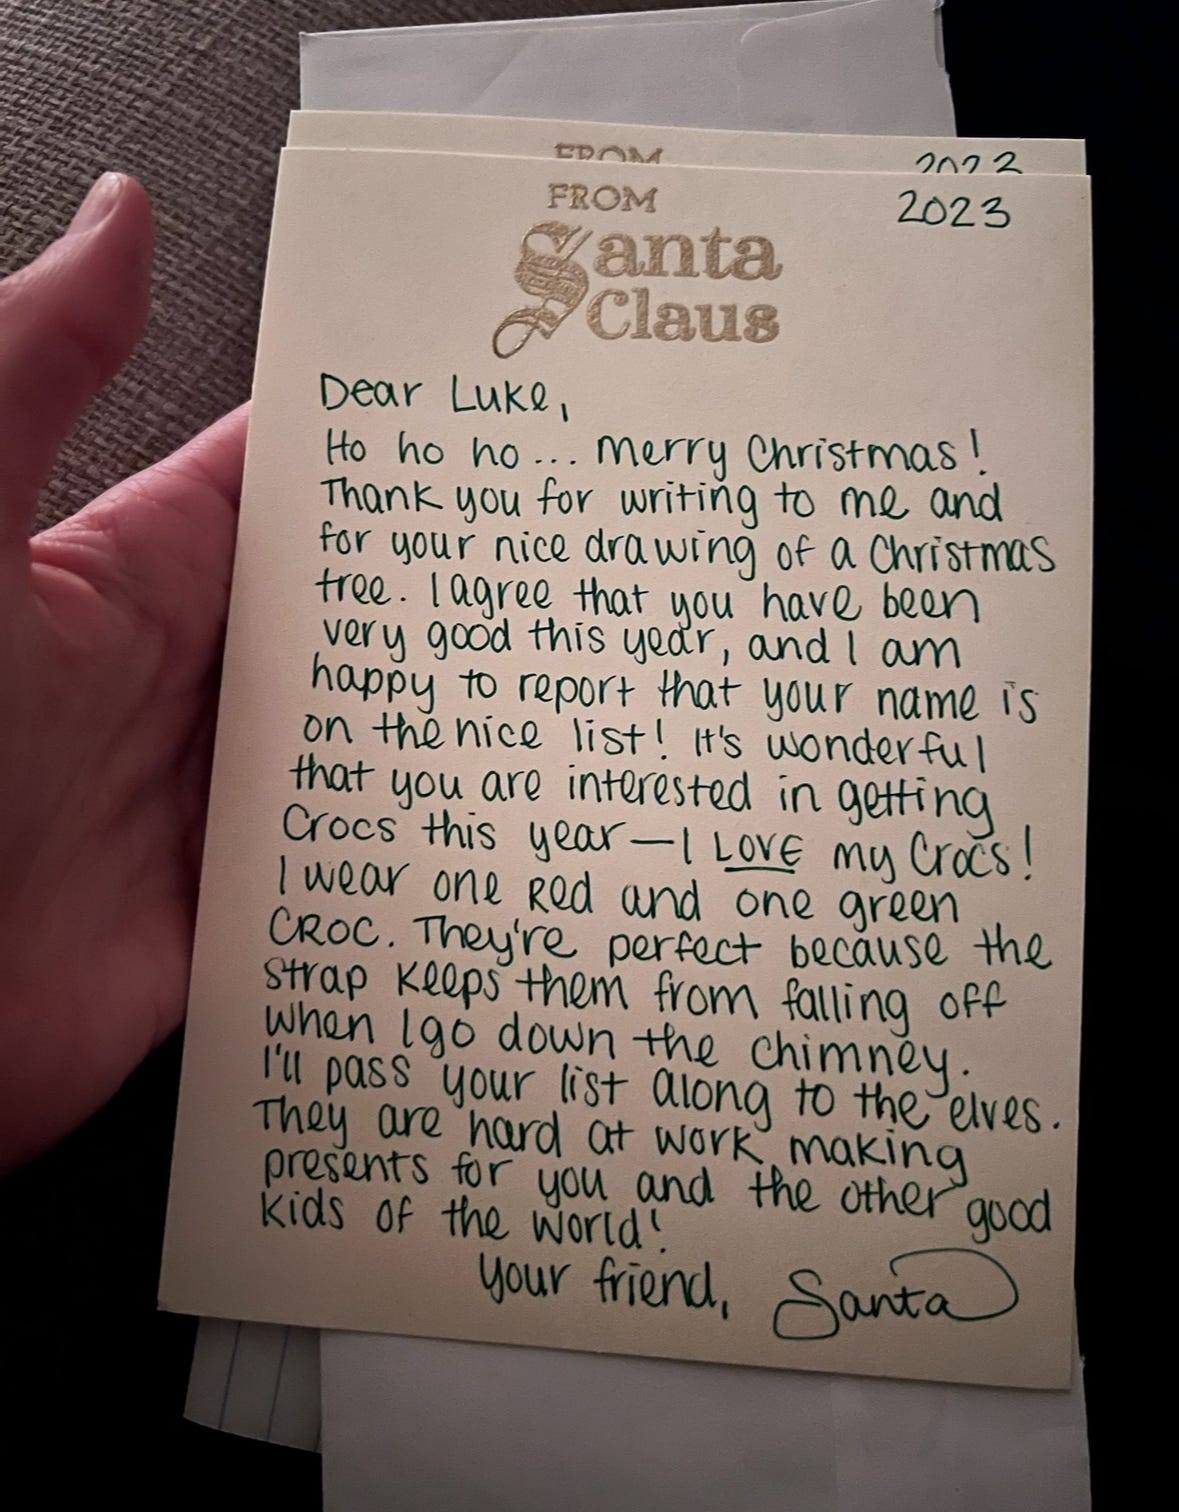 FROM
2023
FROM
2023
Santa
Claus
Dear Luke,
Ho ho ho... Merry Christmas!
Thank you for writing to me and
for your nice drawing of a Christmas
tree. I agree that you have been
very good this year, and I am
happy to report that your name is
on the nice list! It's wonderful
that you are interested in getting
Crocs this year—I LOVE my Crocs!
I wear one Red and one green
CROC. They're perfect because the
strap keeps them from falling off
when I go down the chimney.
I'll pass your list along to the elves.
They are hard at work making
presents for you and the other good
kids of the world!
Your friend, Santa